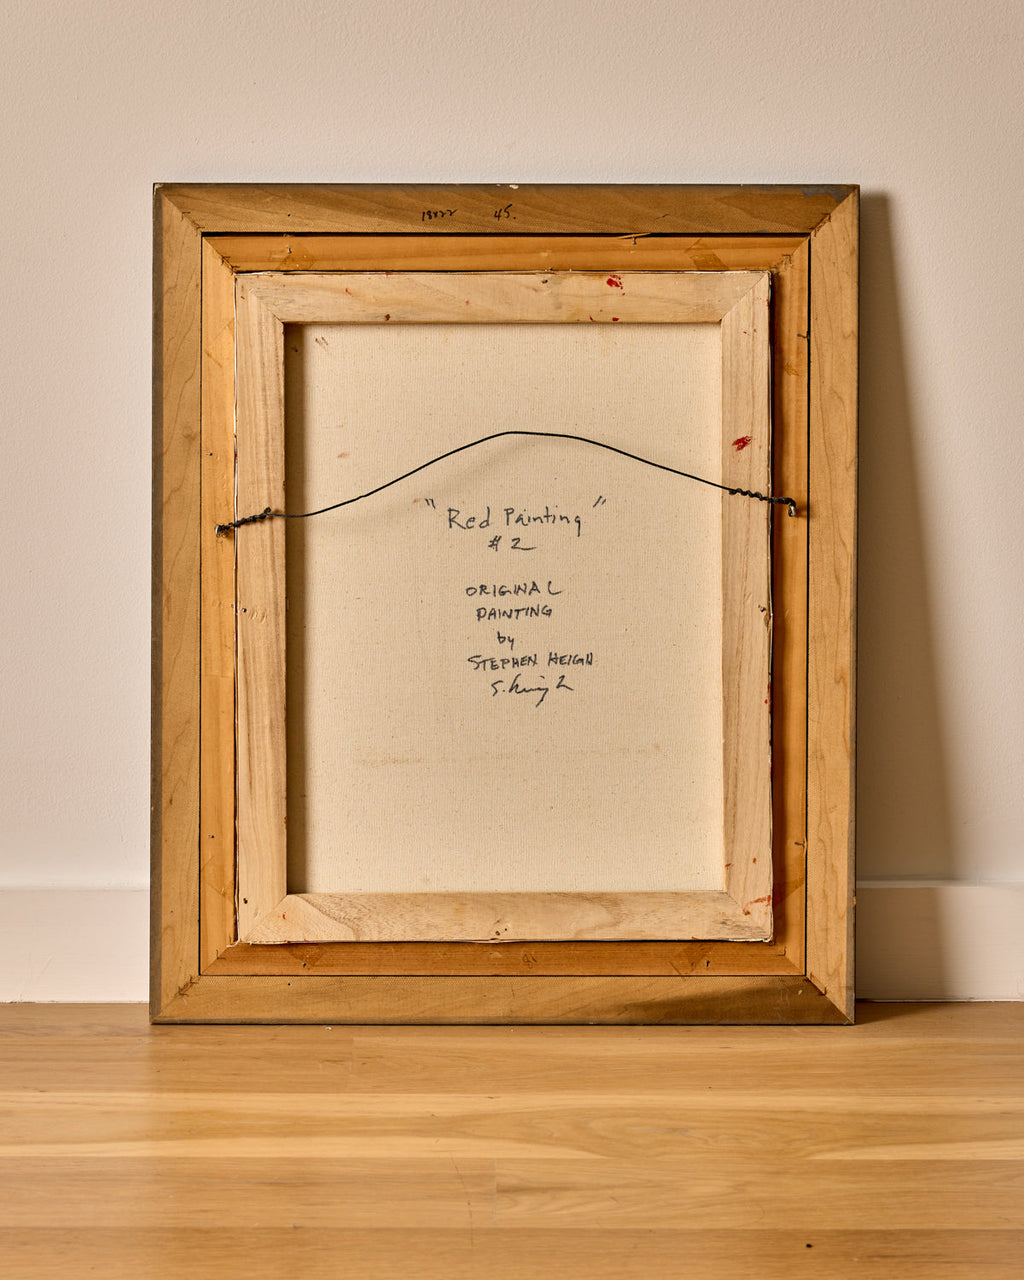 18x22 45.
"Red Painting"
# 2
ORIGINAL
PAINTING
by
STEPHEN HEIGH